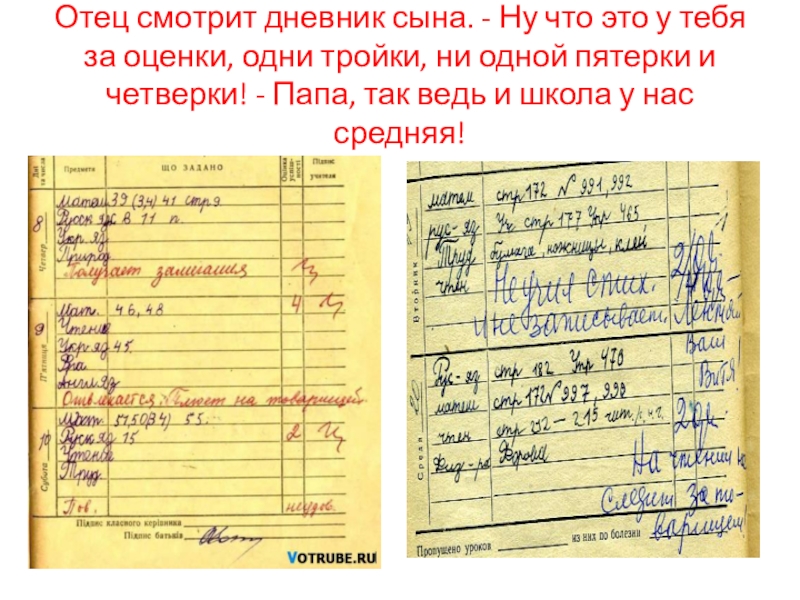 Отец смотрит дневник сына. - Ну что это у тебя
за оценки, одни тройки, ни одной пятерки и
четверки! - Папа, так ведь и школа у нас
средняя!
Дні та числа Предмети ЩО ЗАДАНО Оцінка успішності Підпис учителя
Четвер 8
Матем 39 (3,4) 41 стр 9
Русск яз 8 11 п.
Укр яз
Природ.
Получает замечания
П'ятниця 9
Мат. 46, 48 4
Чтение
Укр яз 45.
Англ яз
Отвлекается. Плюет на товарищей.
Субота 10
Мат. 5.
Русск яз 15 2
Чтение
Труд
Пов. неудов.
Підпис класного керівника
Підпис батьків
VOTRUBE.RU
Вторник
матем стр 172 № 991, 992
рус-яз Уч. стр 177 Упр 465
Труд бумага, ножницы, клей
чтен Не учил стих.
и не записывает. Ленивый
Ваш
Витя!
Среда
Рус-яз стр 182 Упр 470
матем стр 172 № 997, 998
чтен стр 212 — 215 чит.
Физ-ра Форма
На чтении не
следит за то-
варищем!
Пропущено уроков из них по болезни